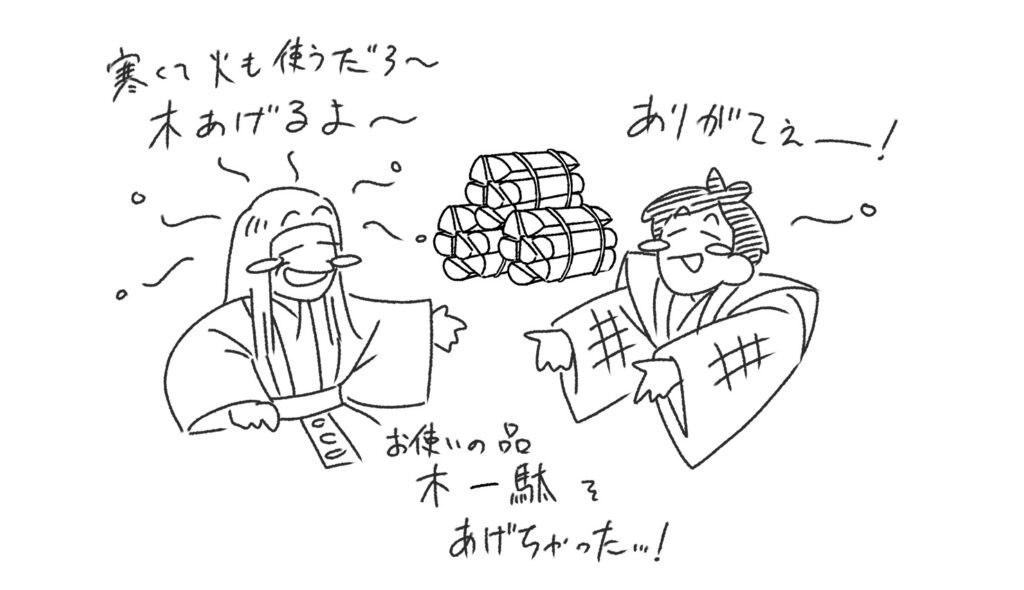 寒くて火も使うだろ〜
木あげるよ〜
ありがてぇー！
お使いの品
木一駄を
あげちゃった…！